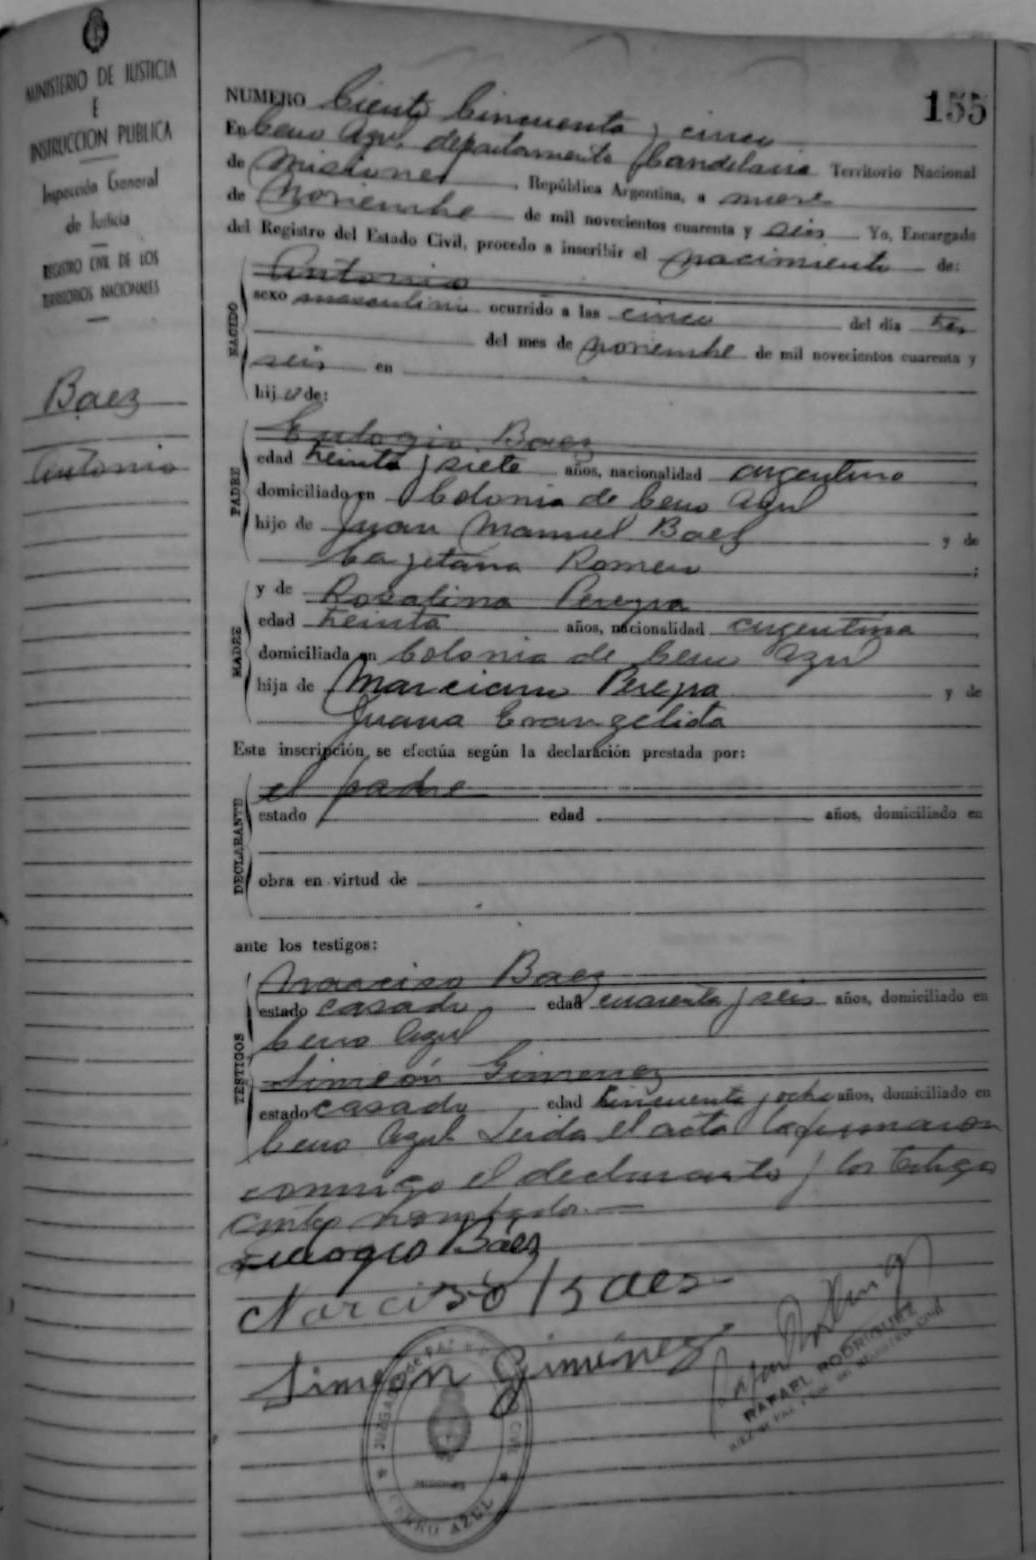 MINISTERIO DE JUSTICIA
E
INSTRUCCION PUBLICA
Inspección General
de Justicia
REGISTRO CIVIL DE LOS
TERRITORIOS NACIONALES
Baez
Antonio
155
NUMERO Ciento Cincuenta y cinco
En Cerro Azul, departamento Candelaria Territorio Nacional
de Misiones, República Argentina, a nueve
de Noviembre de mil novecientos cuarenta y seis Yo, Encargado
del Registro del Estado Civil, procedo a inscribir el nacimiento de:
NACIDO
Antonio
sexo masculino ocurrido a las cinco del día tres
del mes de noviembre de mil novecientos cuarenta y
seis en
hijo de:
PADRE
Eulogio Baez
edad treinta y siete años, nacionalidad argentino
domiciliado en Colonia de Cerro Azul
hijo de Juan Manuel Baez y de
Cayetana Romero ;
MADRE
y de Rosalina Pereyra
edad treinta años, nacionalidad argentina
domiciliada en Colonia de Cerro Azul
hija de Marciano Pereyra y de
Juana Evangelista
Esta inscripción, se efectúa según la declaración prestada por:
DECLARANTE
el padre
estado edad años, domiciliado en
obra en virtud de
ante los testigos:
TESTIGOS
Narciso Baez
estado casado edad cuarenta y seis años, domiciliado en
Cerro Azul
Simeón Gimenez
estado casado edad cincuenta y ocho años, domiciliado en
Cerro Azul. Leida el acta la firmaron
conmigo el declarante y los testigos
antes nombrados.—
Eulogio Báez
Narciso Baes
Simeón Giménez
RAFAEL RODRIGUEZ
JUZGADO DE PAZ
MISIONES
CERRO AZUL